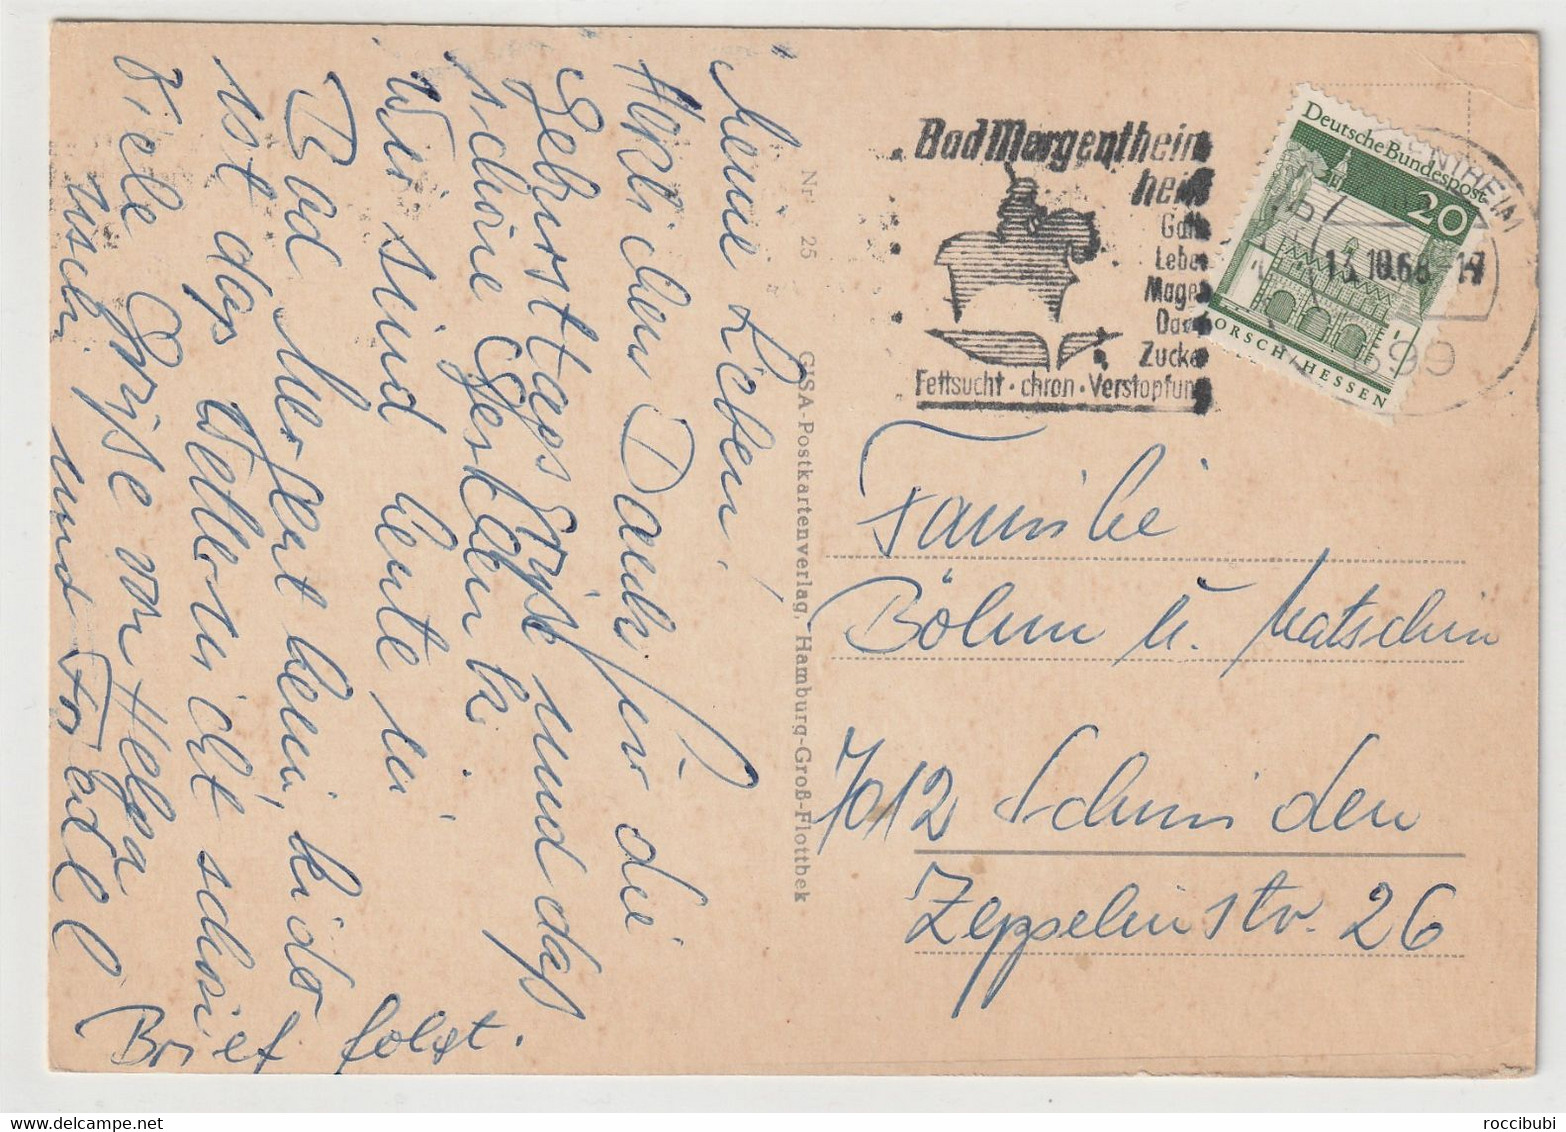 Meine Lieben,
Herzlichen Dank für die
Geburtstagsgrüße und das
schöne Gestklein k.
Wir sind heute in
Bad Mergentheim, leider
ist das Wetter nicht schön
Viele Grüße von Helga
Uschi und Friedel
Brief folgt.
Nr. 25
GISA-Postkartenverlag, Hamburg-Groß-Flottbek
Bad Mergentheim
heilt
Galle
Leber
Magen
Darm
Zucker
Fettsucht · chron · Verstopfung
Deutsche Bundespost
20
LORSCH/HESSEN
ENTHEIM
13.10.68.-17
699
Familie
Böhm u. Matschin
7012 Schmiden
Zeppelinstr. 26
roccibubi